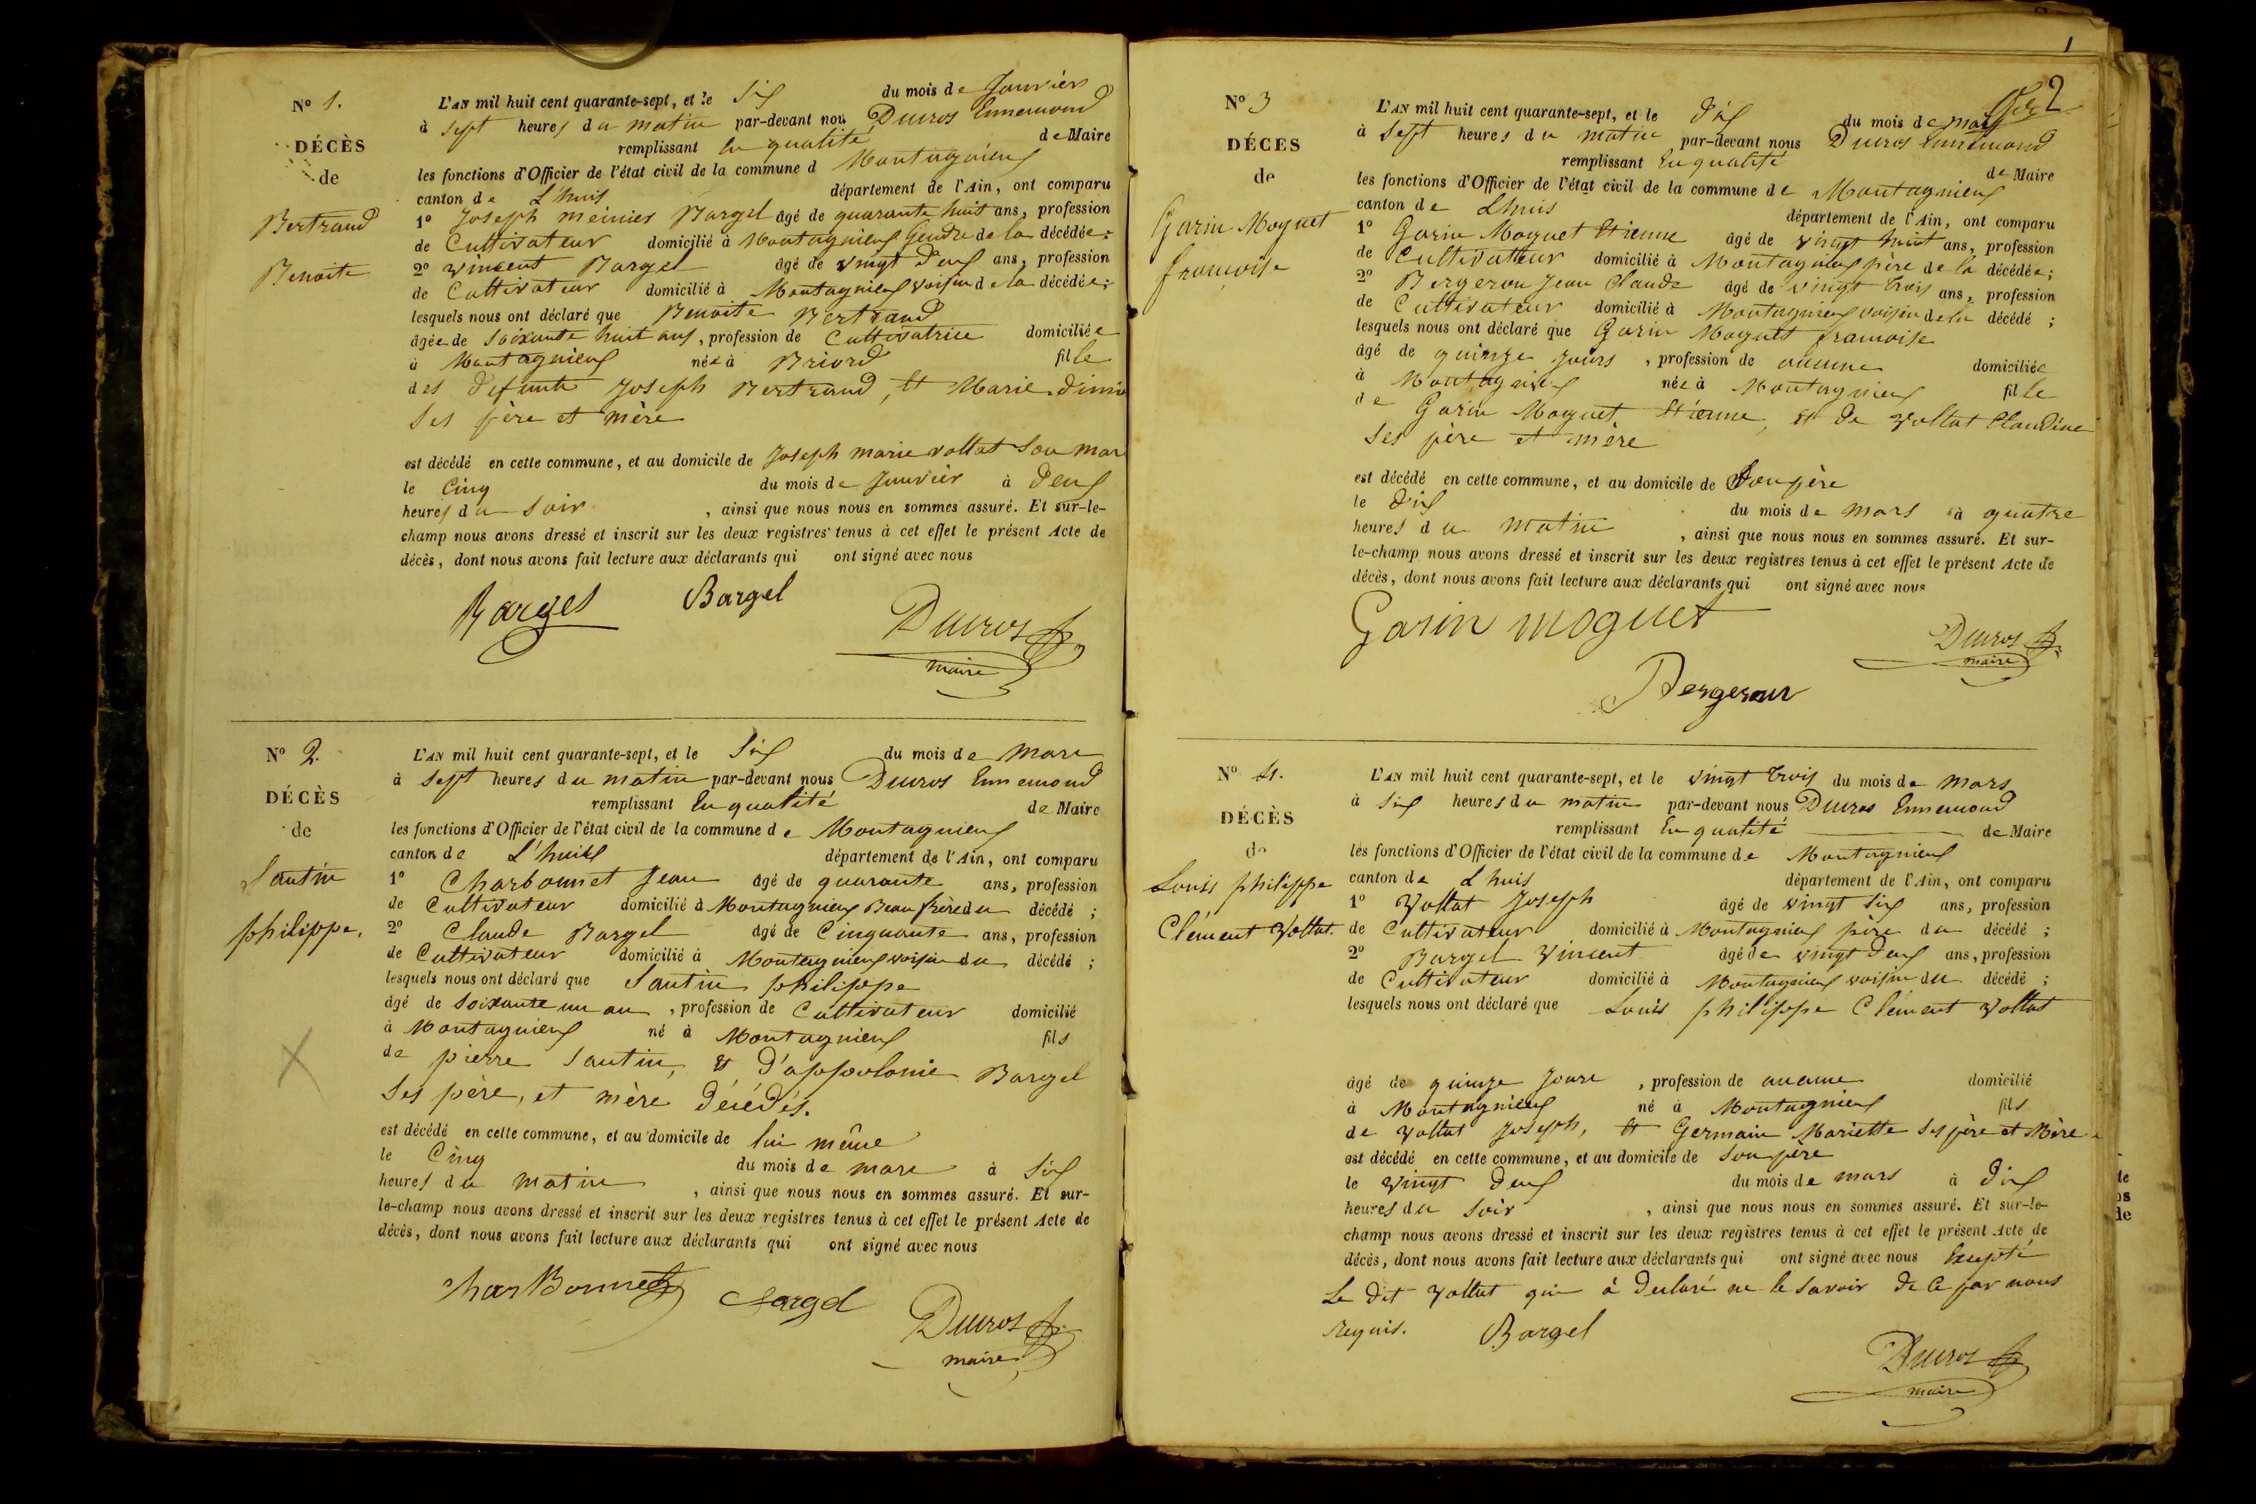 N° 1.
DÉCÈS
de
Bertrand
Benoite
L'AN mil huit cent quarante-sept, et le Six du mois de Janvier
à Sept heures du matin par-devant nou Ducros Ennemond
remplissant En qualité de Maire
les fonctions d'Officier de l'état civil de la commune d Montagnieux
canton de L'huis département de l'Ain, ont comparu
1° Joseph meinier Bargel âgé de quarante huit ans, profession
de Cultivateur domicilié à Montagnieux Gendre de la décédée;
2° Vincent Bargel âgé de vingt deux ans, profession
de Cultivateur domicilié à Montagnieux voisin de la décédée;
lesquels nous ont déclaré que Benoite Bertrand
âgée de Soixante huit ans, profession de Cultivatrice domiciliée
à Montagnieux née à Briord fille
des défunts Joseph Bertrand, Et Marie
Ses père et mère
est décédé en cette commune, et au domicile de Joseph marie vollat Son mar
le Cinq du mois de Janvier à Deux
heures du Soir, ainsi que nous nous en sommes assuré. Et sur-le-
champ nous avons dressé et inscrit sur les deux registres tenus à cet effet le présent Acte de
décès, dont nous avons fait lecture aux déclarants qui ont signé avec nous
Bargel Bargel Ducros
maire
N° 2.
DÉCÈS
de
Santin
philippe.
L'AN mil huit cent quarante-sept, et le Six du mois de Mars
à Sept heures du matin par-devant nous Ducros Ennemond
remplissant En qualité de Maire
les fonctions d'Officier de l'état civil de la commune de Montagnieux
canton de L'huis département de l'Ain, ont comparu
1° Charbonnet Jean âgé de quarante ans, profession
de Cultivateur domicilié à Montagnieux Beau frère du décédé;
2° Claude Bargel âgé de Cinquante ans, profession
de Cultivateur domicilié à Montagnieux voisin du décédé;
lesquels nous ont déclaré que Santin philippe
âgé de Soixante un an, profession de Cultivateur domicilié
à Montagnieux né à Montagnieux fils
de pierre Santin, Et D'appolonie Bargel
Ses père, et mère Décédés.
est décédé en cette commune, et au domicile de lui même
le Cinq du mois de mars à Six
heures du matin, ainsi que nous nous en sommes assuré. Et sur-
le-champ nous avons dressé et inscrit sur les deux registres tenus à cet effet le présent Acte de
décès, dont nous avons fait lecture aux déclarants qui ont signé avec nous
CharBonnet Bargel Ducros
maire
1
2
N° 3
DÉCES
de
Garin Moguet
françoise
L'AN mil huit cent quarante-sept, et le Dix du mois de mars
à Sept heures du matin par-devant nous Ducros Ennemond
remplissant En qualité de Maire
les fonctions d'Officier de l'état civil de la commune de Montagnieux
canton de Lhuis département de l'Ain, ont comparu
1° Garin Moguet Etienne âgé de vingt huit ans, profession
de Cultivateur domicilié à Montagnieux père de la décédée;
2° Bergeron Jean Claude âgé de vingt trois ans, profession
de Cultivateur domicilié à Montagnieux voisin de la décédé;
lesquels nous ont déclaré que Garin Moguet francoise
âgé de quinze jours, profession de aucune domiciliée
à Montagnieux née à Montagnieux fille
de Garin Moguet Etienne, Et De vollat Claudine
Ses père et mère
est décédé en cette commune, et au domicile de Son père
le Dix du mois de mars à quatre
heures du matin, ainsi que nous nous en sommes assuré. Et sur-
le-champ nous avons dressé et inscrit sur les deux registres tenus à cet effet le présent Acte de
décès, dont nous avons fait lecture aux déclarants qui ont signé avec nous
Garin moguet Ducros
maire
Bergeron
N° 4.
DÉCÈS
de
Louis philippe
Clément Vollat.
L'AN mil huit cent quarante-sept, et le vingt trois du mois de Mars
à Six heures du matin par-devant nous Ducros Ennemond
remplissant En qualité de Maire
les fonctions d'Officier de l'état civil de la commune de Montagnieux
canton de Lhuis département de l'Ain, ont comparu
1° Vollat Joseph âgé de vingt Six ans, profession
de Cultivateur domicilié à Montagnieux père du décédé;
2° Bargel Vincent âgé de vingt deux ans, profession
de Cultivateur domicilié à Montagnieux voisin du décédé;
lesquels nous ont déclaré que Louis philippe Clément Vollat
âgé de quinze Jours, profession de aucune domicilié
à Montagnieux né à Montagnieux fils
de Vollat Joseph, Et Germain Mariette Ses père et Mère
est décédé en cette commune, et au domicile de Son père
le Vingt Deux du mois de mars à Dix
heures du Soir, ainsi que nous nous en sommes assuré. Et sur-le-
champ nous avons dressé et inscrit sur les deux registres tenus à cet effet le présent Acte de
décès, dont nous avons fait lecture aux déclarants qui ont signé avec nous Excepté
Le dit Vollat qui à Declaré ne le Savoir De Ce par nous
Requis. Bargel
Ducros
maire